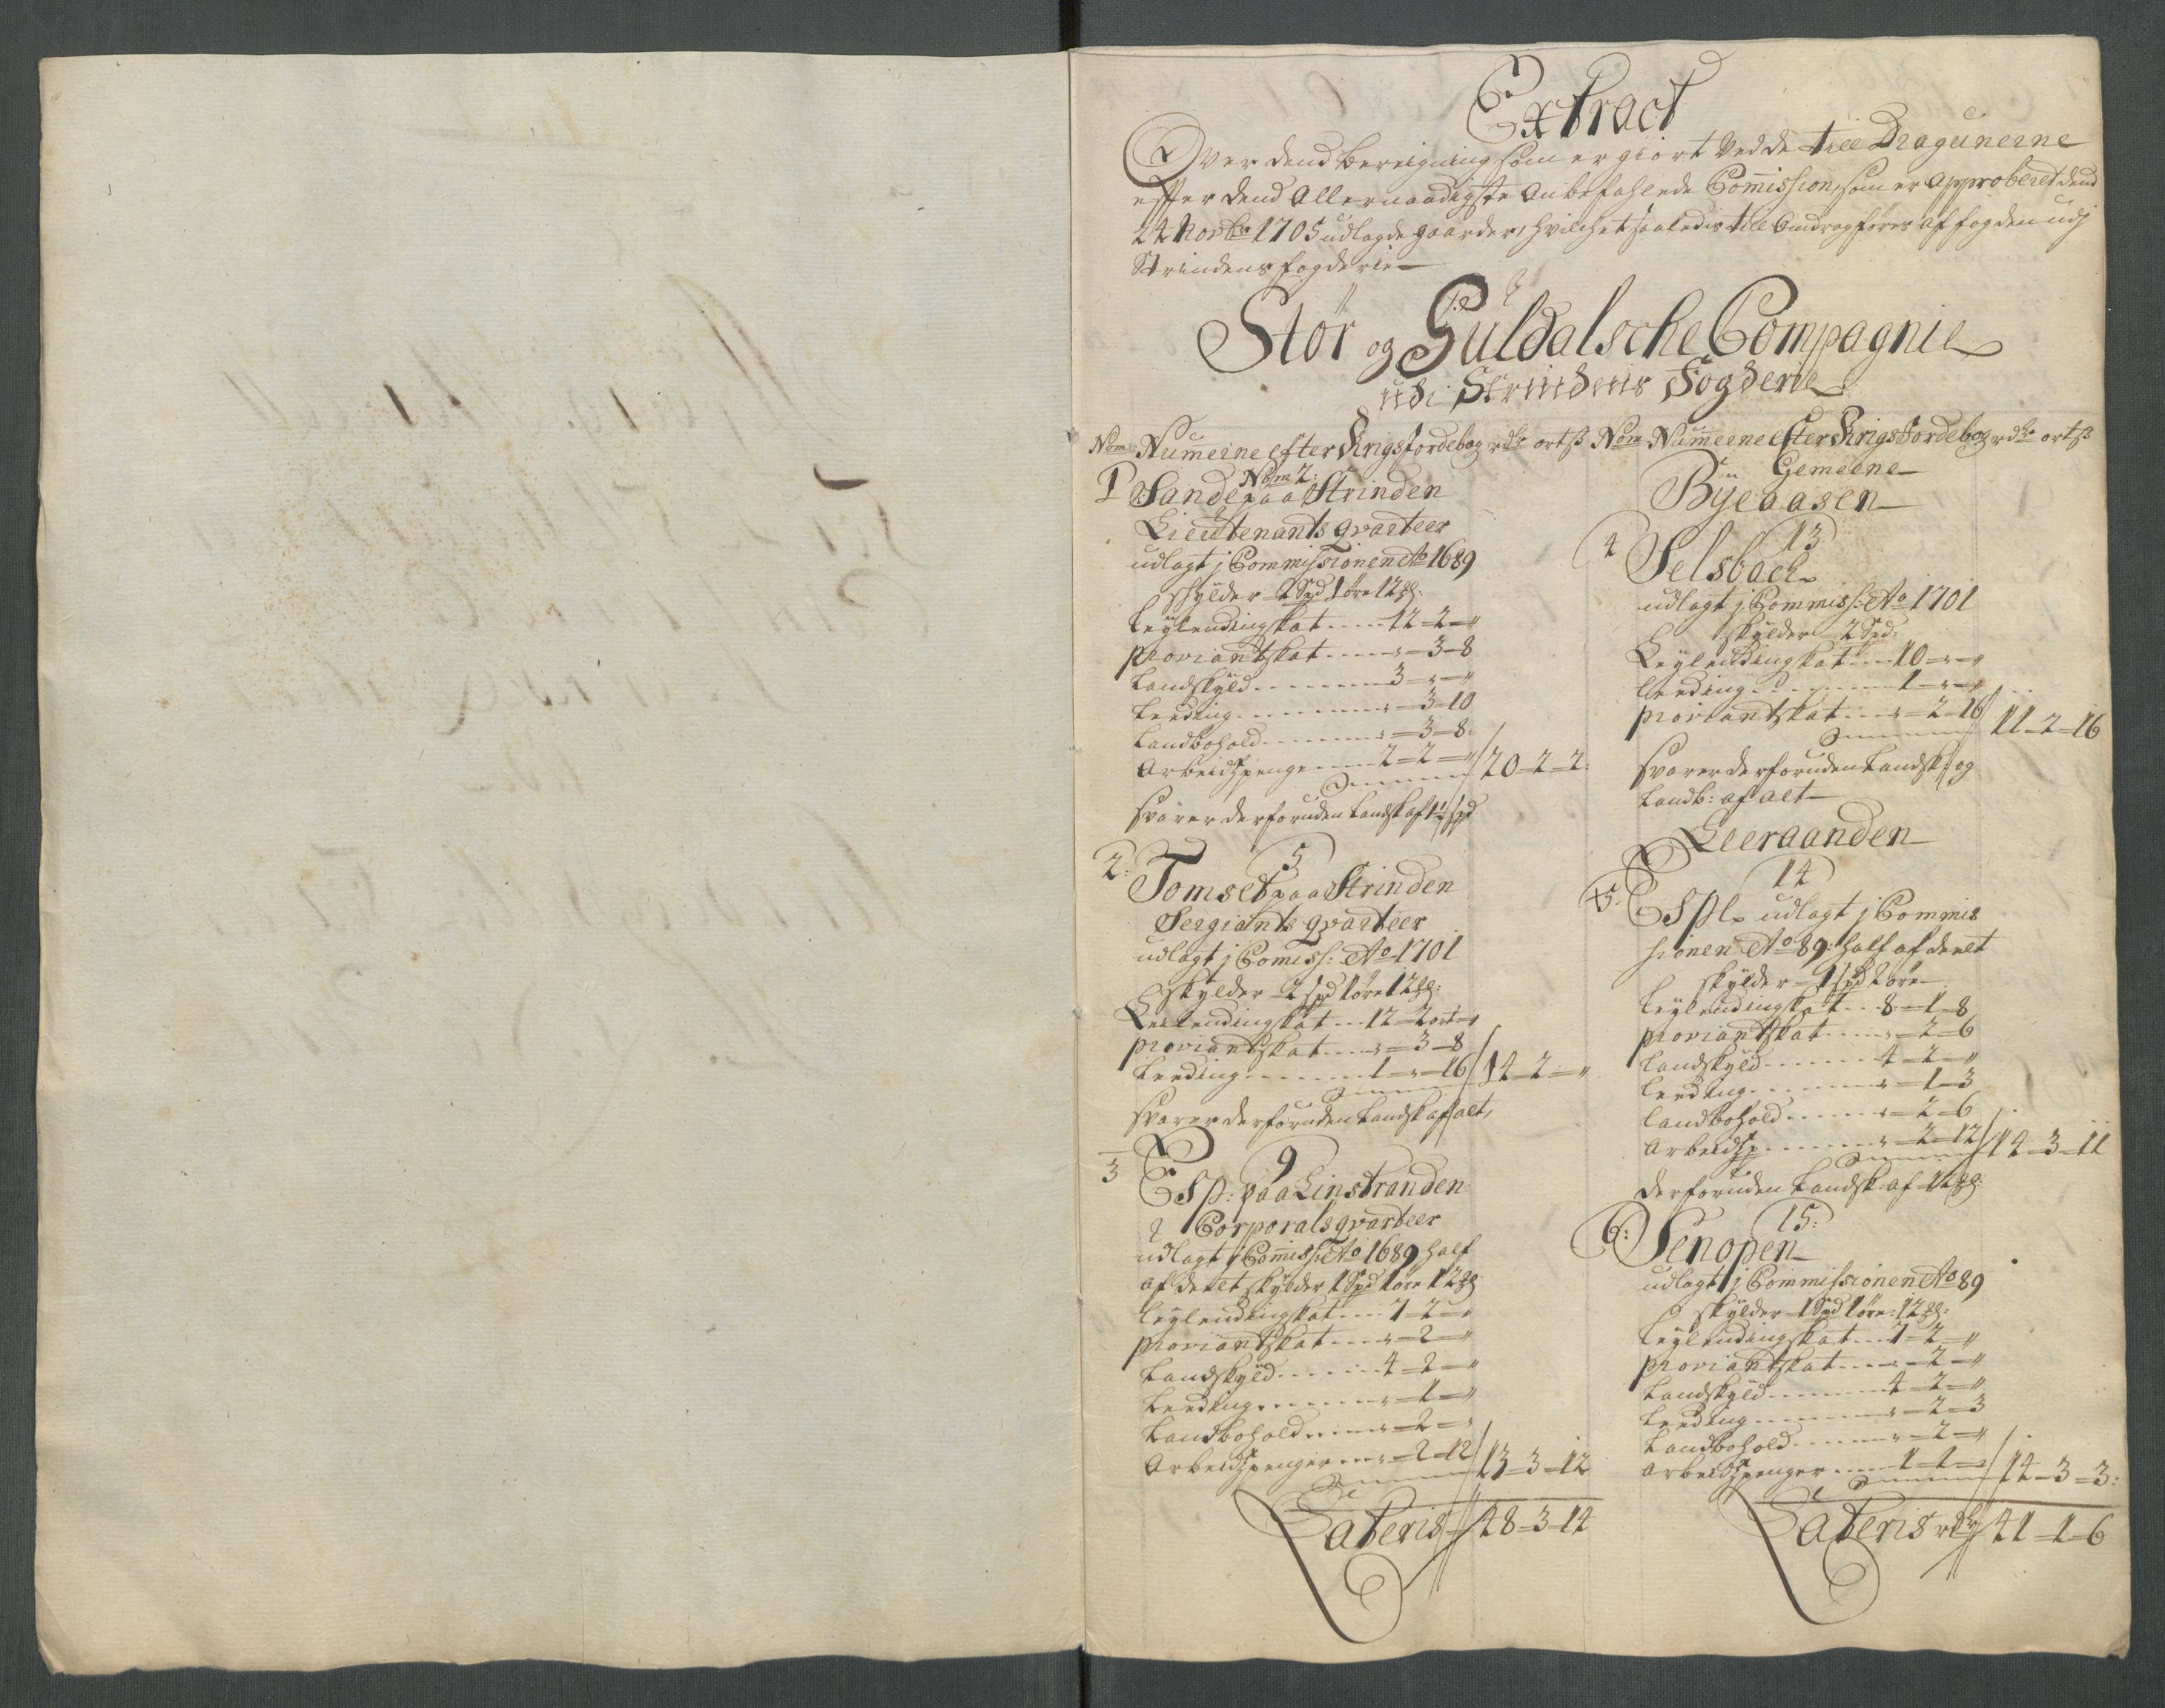 Extract
Over dend bereigning som er giort ved de till Dragunerne
effter dend Allernaadigste anbefahlede Commission, som er approberet dend
24 Novbr 1705 udlagde gaarder, hvilchet saaledis till Emdrag föres af fogden udj
Strindens fogderie
Stör og Guldalsche Compagnie
udi Strindens Fogderie
Nom Numerne efter Krigs Jordebog rdr ort ß
Nom 2:
1 Sande paa Strinden
Lieutenants qvarteer
udlagt j Commissionen Ao 1689
skylder 2 Spd 1 öre 12 gl:
Leylendingskat 12-2-"
proviantskat "-3-8
Landskyld 3-"-"
Leeding "-3-10
Landbohold "-3-8
Arbeidspenge 2-2-" 20-2-2:
svarer derforuden Landsk af 1½ spd
5
2: Tomset paa Strinden
Sergiants qvarteer
udlagt j Comiss: Ao 1701
skylder 2 spd 1 öre 12 gl:
Leilendingskat 12-2 ort-"
proviantskat "-3-8
Leeding 1-"-16 14-2-"
svarer derforuden Landsk af alt,
9
3 Esp: paa Linstranden
Corporals qvarteer
udlagt j Commiss: Ao 1689 half
af deelt skylder 1 Spd 1 öre 12 gl
Leylendingskat 7-2-"
proviantskat "-2-"
Landskyld 4-2-"
Leeding "-1-"
Landbohold "-2-"
Arbeidspenger "-2-12 13-3-12
Lateris 48-3-14
Nom Numerne efter Krigs Jordebog rdr ort ß
Gemeene
Byeaasen
13
4 Selsbach
udlagt j Commiss: Ao 1701
skylder 2 Spd:
Leylendingskat 10-"-"
Leeding 1-"-"
proviantskat "-2-16 11-2-16
svarer derforuden Landsk: og
Landb: af alt
Leeraanden
14
5. Espl udlagt j Commis
sionen Ao 89: half af deelt
skylder 1 spd 2 öre
Leylendingskat 8-1-8
proviantskat "-2-6
Landskyld 4-2-"
Leeding "-1-3
Landbohold "-2-6
Arbeidsp "-2-12 14-3-11
derforuden Landsk af 12 gl:
15:
6: Senopen
udlagt j Commissionen Ao 89
skylder 1 Spd 1 öre: 12 gl:
Leylendingskat 7-2-"
proviantskat "-2-"
Landskyld 4-2-"
Leeding "-2-3
Landbohold "-2-"
Arbeidspenger 1-1-" 14-3-3:
Lateris rdr 41-1-6